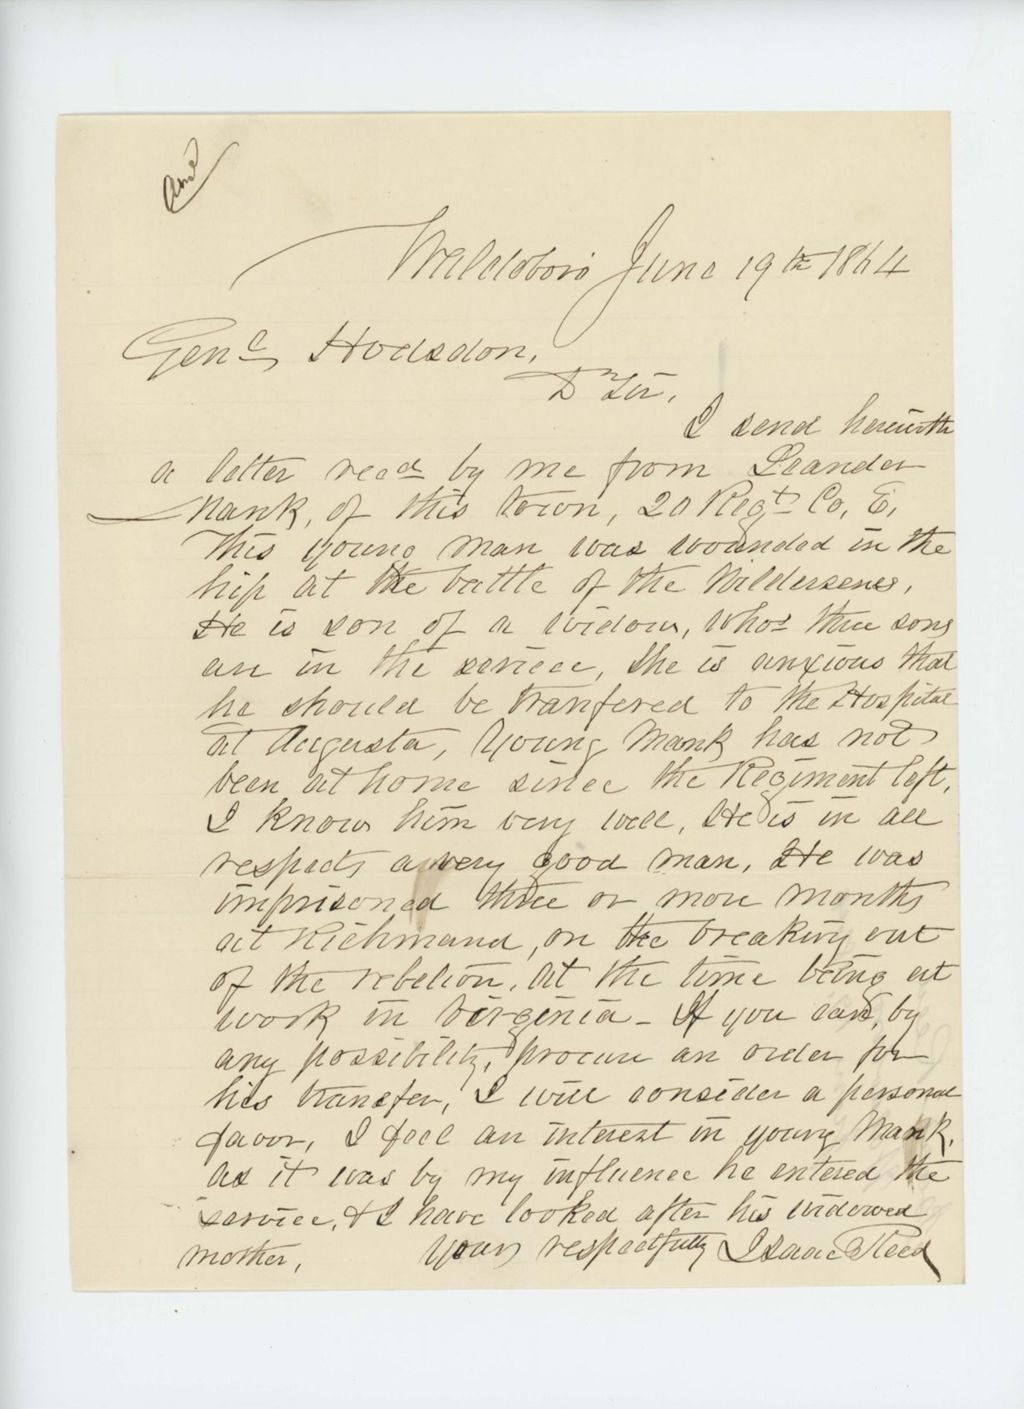 Ansd
Waldoboro June 19th 1864
Genl Hodsdon,
Dr Sir,
I send herewith
a letter recd by me from Leander
Mank, of this town, 20 Regt Co, E,
This young man was wounded in the
hip at the battle of the Wildersenes,
He is son of a widow, whos three sons
are in the service, She is anxious that
he should be tranfered to the Hospital
at Augusta, Young Mank has not
been at home since the Regiment left,
I know him very well, He is in all
respects a very good man, He was
imprisoned three or more months
at Richmand, on the breaking out
of the rebelion, at the time being at
work in Virginia - If you can, by
any possibility, procure an order for
his transfer, I will consider a personal
favor, I feel an interest in young Mank,
as it was by my influence he entered the
service, & I have looked after his widowed
mother, Yours respectfully Isaac Reed